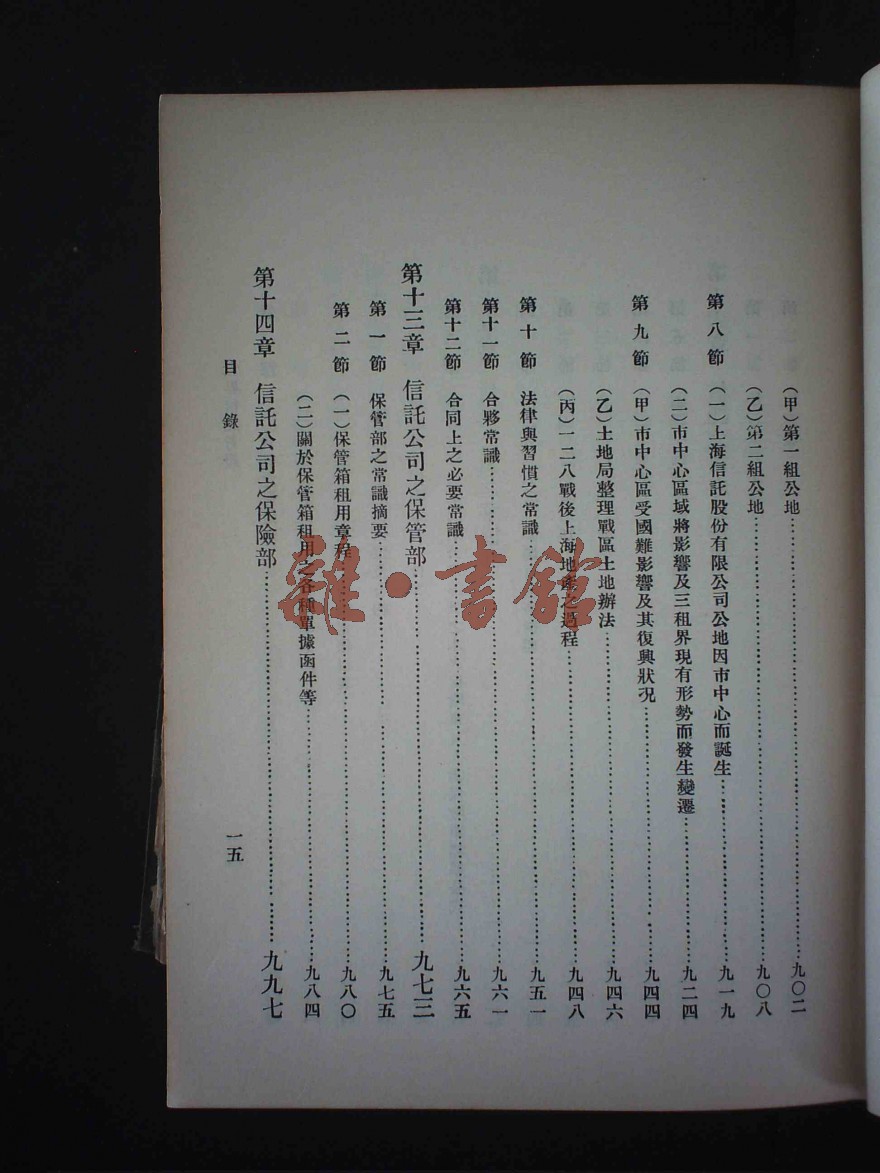 （甲）第一組公地……九〇二
（乙）第二組公地……九〇八
第八節 （一）上海信託股份有限公司公地因市中心而誕生……九一九
（二）市中心區域將影響及三租界現有形勢而發生變遷……九二四
第九節 （甲）市中心區受國難影響及其復興狀況……九四四
（乙）土地局整理戰區土地辦法……九四六
（丙）一二八戰後上海地產之過程……九四八
第十節 法律與習慣之常識……九五一
第十一節 合夥常識……九六一
第十二節 合同上之必要常識……九六五
第十三章 信託公司之保管部……九七三
第一節 保管部之常識摘要……九七五
第二節 （一）保管箱租用章程……九八〇
（二）關於保管箱租用之各種單據函件等……九八四
第十四章 信託公司之保險部……九九七
目錄
一五
雜·書館